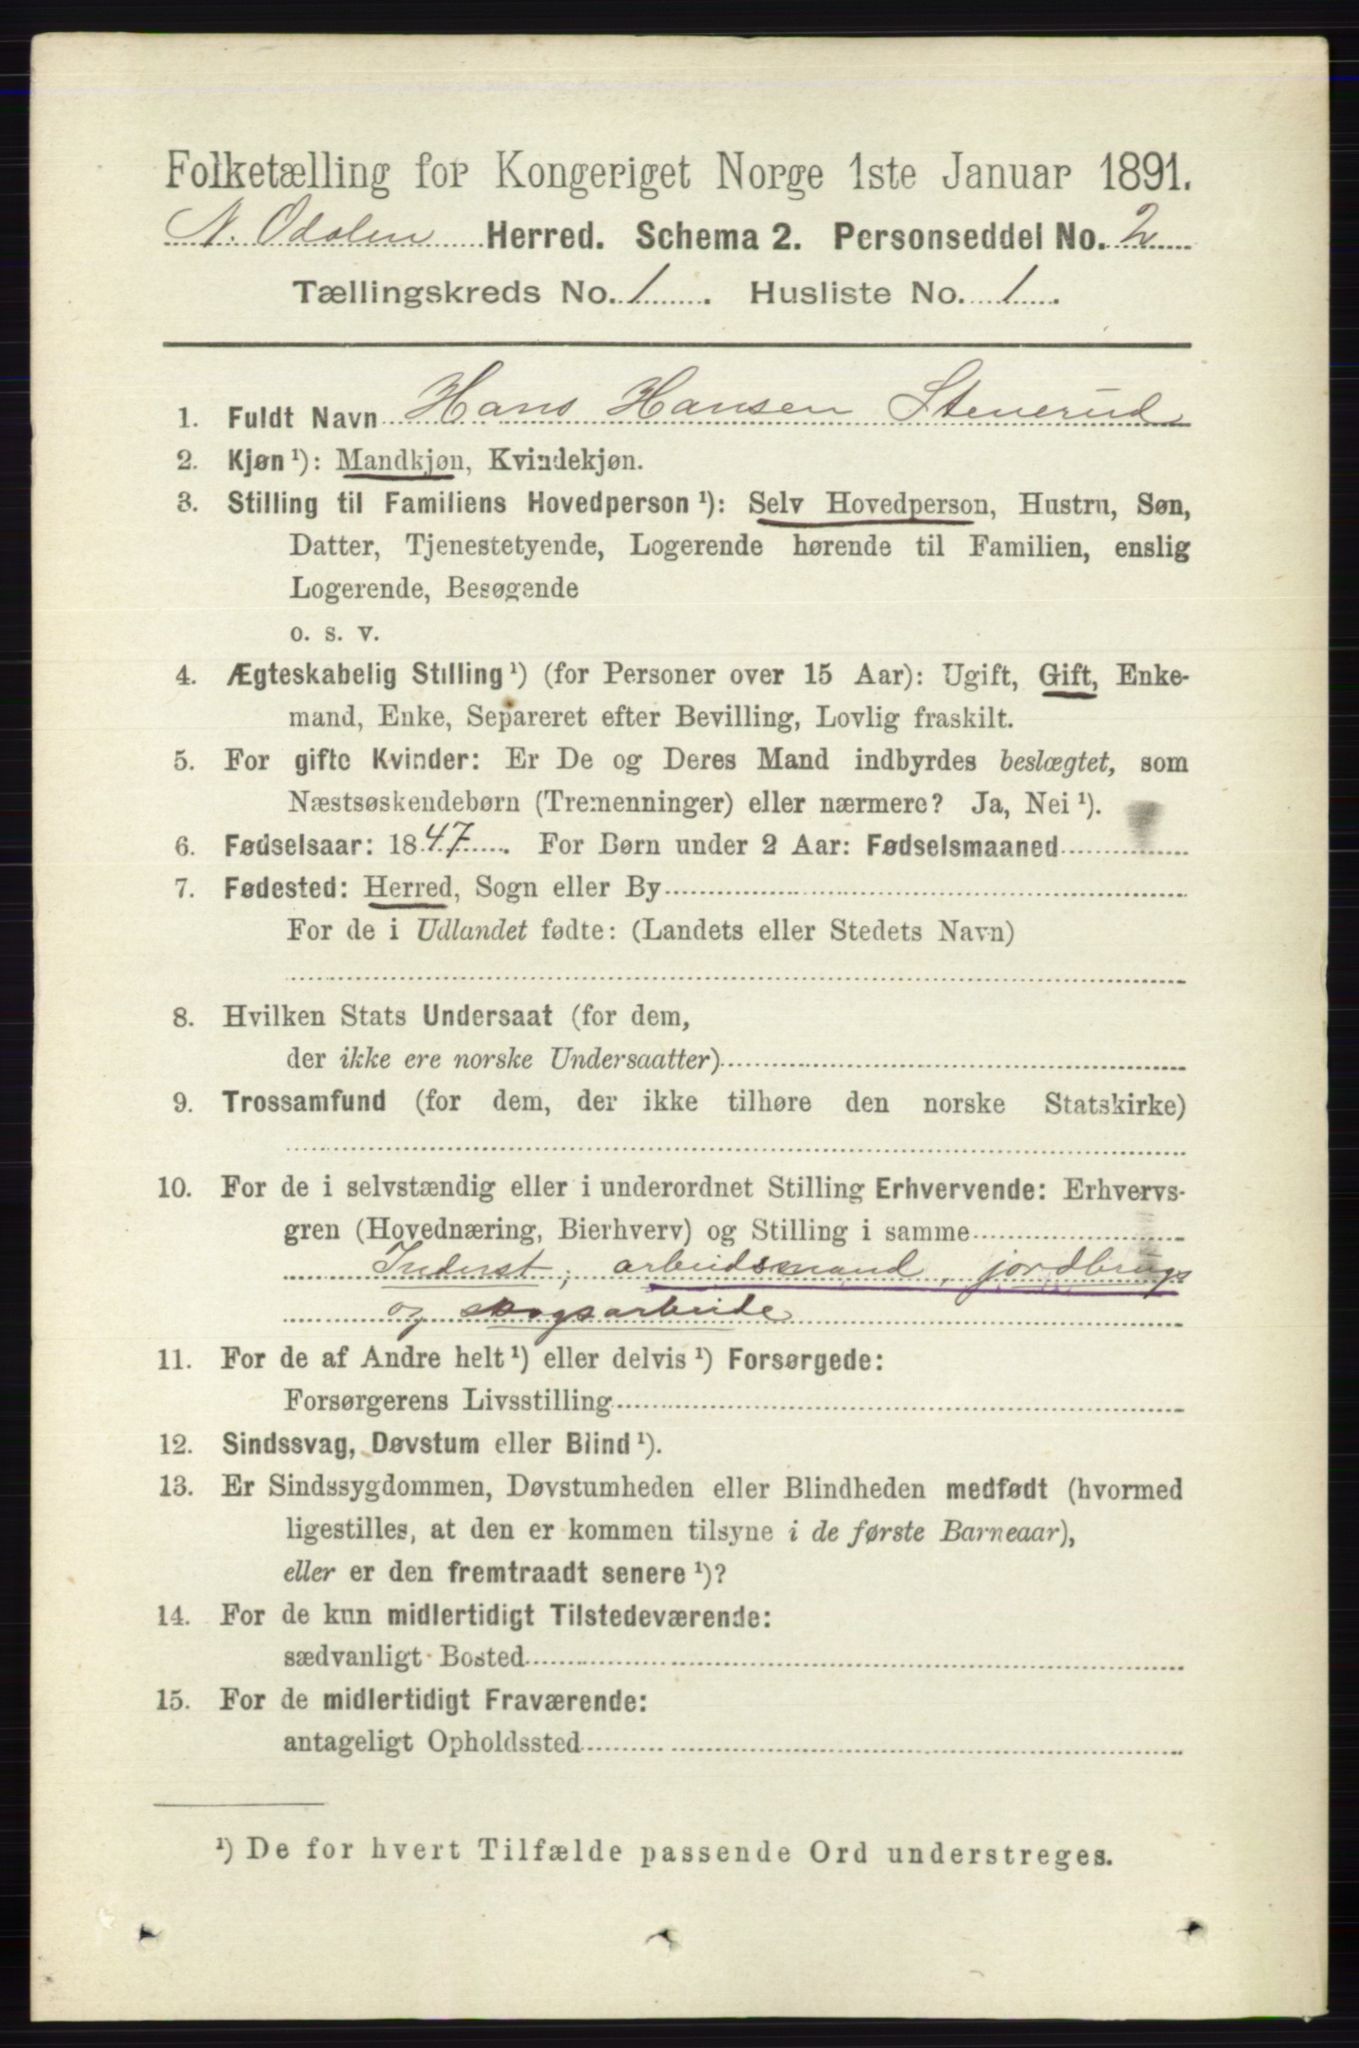 Folketælling for Kongeriget Norge 1ste Januar 1891.
N. Odalen Herred. Schema 2. Personseddel No. 2
Tællingskreds No. 1. Husliste No. 1.
1. Fuldt Navn Hans Hansen Stenerud
2. Kjøn ¹): Mandkjøn, Kvindekjøn.
3. Stilling til Familiens Hovedperson ¹): Selv Hovedperson, Hustru, Søn,
Datter, Tjenestetyende, Logerende hørende til Familien, enslig
Logerende, Besøgende
o. s. v.
4. Ægteskabelig Stilling ¹) (for Personer over 15 Aar): Ugift, Gift, Enke-
mand, Enke, Separeret efter Bevilling, Lovlig fraskilt.
5. For gifte Kvinder: Er De og Deres Mand indbyrdes beslægtet, som
Næstsøskendebørn (Tremenninger) eller nærmere? Ja, Nei ¹).
6. Fødselsaar: 1847. For Børn under 2 Aar: Fødselsmaaned
7. Fødested: Herred, Sogn eller By
For de i Udlandet fødte: (Landets eller Stedets Navn)
8. Hvilken Stats Undersaat (for dem,
der ikke ere norske Undersaatter)
9. Trossamfund (for dem, der ikke tilhøre den norske Statskirke)
10. For de i selvstændig eller i underordnet Stilling Erhvervende: Erhvervs-
gren (Hovednæring, Bierhverv) og Stilling i samme
Inderst, arbeidsmand, jordbrugs
og skogsarbeide
11. For de af Andre helt ¹) eller delvis ¹) Forsørgede:
Forsørgerens Livsstilling
12. Sindssvag, Døvstum eller Blind ¹).
13. Er Sindssygdommen, Døvstumheden eller Blindheden medfødt (hvormed
ligestilles, at den er kommen tilsyne i de første Barneaar),
eller er den fremtraadt senere ¹)?
14. For de kun midlertidigt Tilstedeværende:
sædvanligt Bosted
15. For de midlertidigt Fraværende:
antageligt Opholdssted
¹) De for hvert Tilfælde passende Ord understreges.